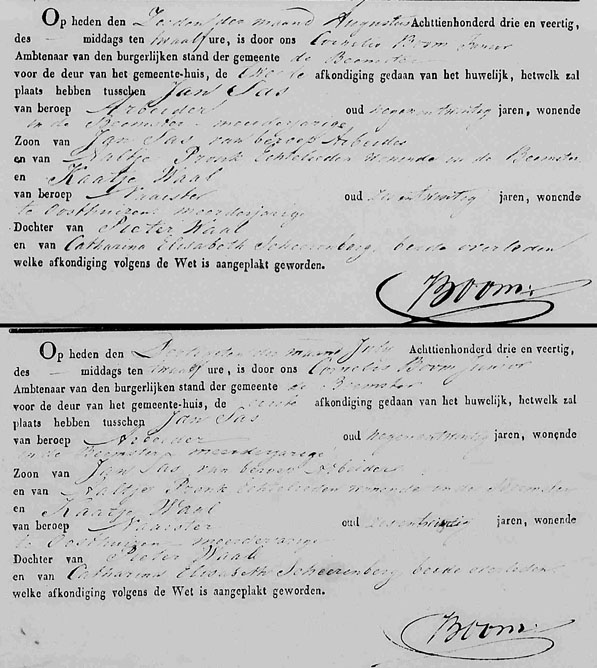 Op heden den Zesden der maand Augustus Achttienhonderd drie en veertig,
des — middags ten twaalf ure, is door ons Cornelis Boom Junior
Ambtenaar van den burgerlijken stand der gemeente de Beemster
voor de deur van het gemeente-huis, de tweede afkondiging gedaan van het huwelijk, hetwelk zal
plaats hebben tusschen Jan Sas
van beroep Arbeider oud negenentwintig jaren, wonende
in de Beemster meerderjarige
Zoon van Jan Sas van beroep Arbeider
en van Naltje Pronk Echtelieden wonende in de Beemster
en Kaatje Waal
van beroep Naaister oud jaren, wonende
te Oosthuizen meerderjarige
Dochter van Pieter Waal
en van Catharina Elisabeth Scheerenberg beide overleden
welke afkondiging volgens de Wet is aangeplakt geworden.
Boom
Op heden den Dertigsten der maand July Achttienhonderd drie en veertig,
des — middags ten twaalf ure, is door ons Cornelis Boom Junior
Ambtenaar van den burgerlijken stand der gemeente de Beemster
voor de deur van het gemeente-huis, de eerste afkondiging gedaan van het huwelijk, hetwelk zal
plaats hebben tusschen Jan Sas
van beroep Arbeider oud negenentwintig jaren, wonende
in de Beemster meerderjarige
Zoon van Jan Sas van beroep Arbeider
en van Naltje Pronk Echtelieden wonende in de Beemster
en Kaatje Waal
van beroep Naaister oud jaren, wonende
te Oosthuizen meerderjarige
Dochter van Pieter Waal
en van Catharina Elisabeth Scheerenberg beide overleden
welke afkondiging volgens de Wet is aangeplakt geworden.
Boom